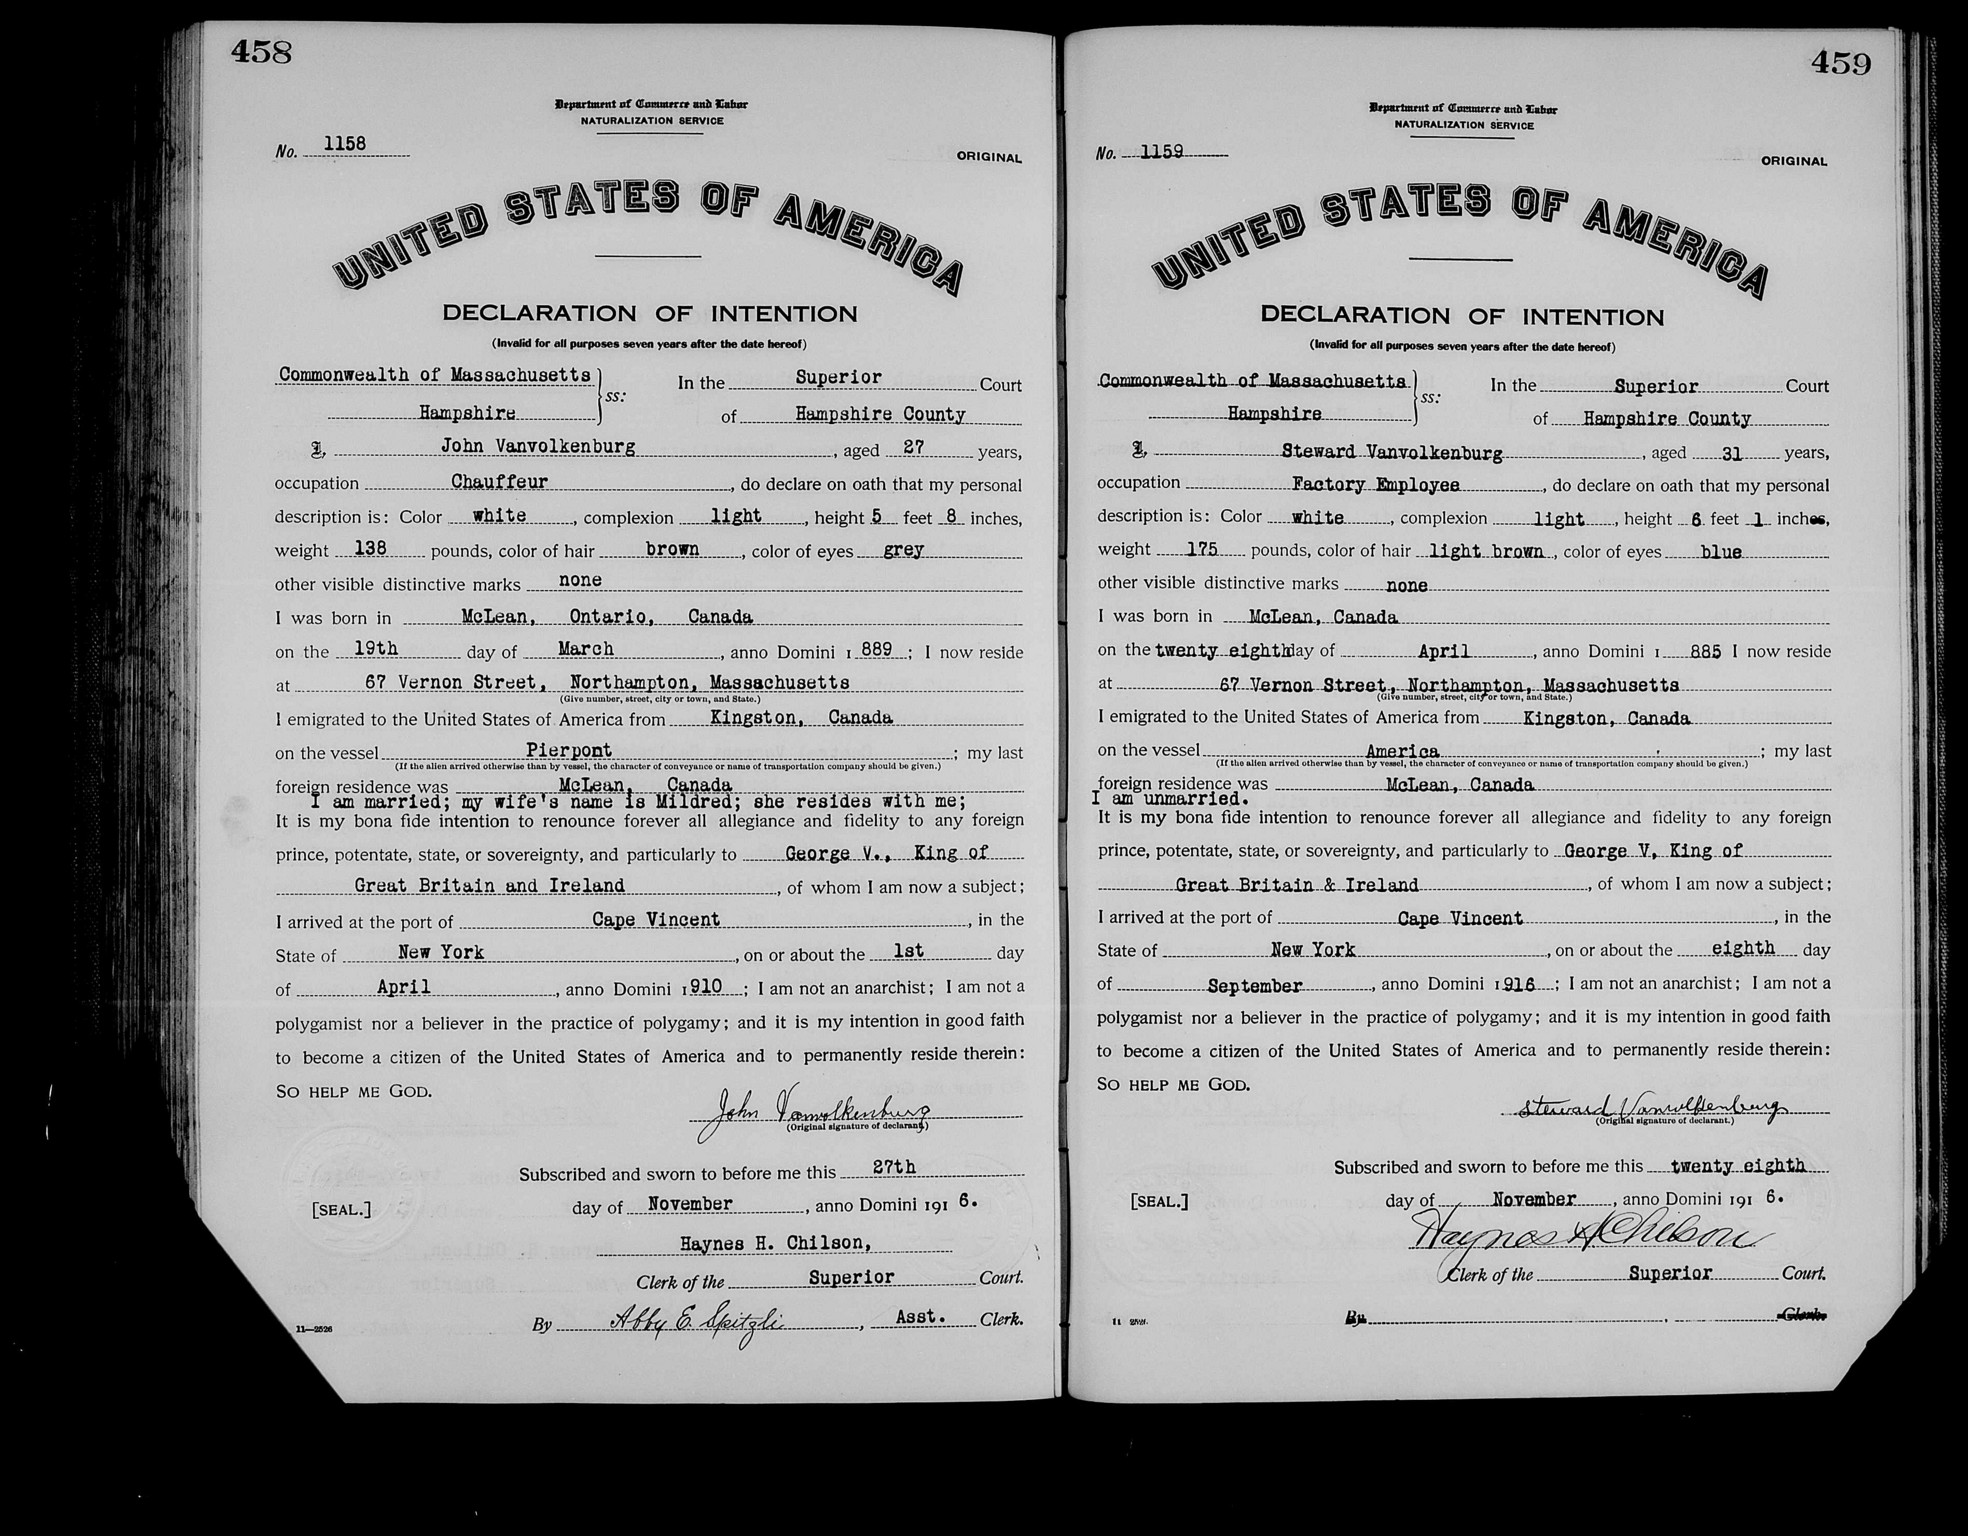 458
Department of Commerce and Labor
NATURALIZATION SERVICE
No. 1158
ORIGINAL
UNITED STATES OF AMERICA
DECLARATION OF INTENTION
(Invalid for all purposes seven years after the date hereof)
Commonwealth of Massachusetts ss: In the Superior Court
Hampshire of Hampshire County
I, John Vanvolkenburg, aged 27 years,
occupation Chauffeur, do declare on oath that my personal
description is: Color white, complexion light, height 5 feet 8 inches,
weight 138 pounds, color of hair brown, color of eyes grey
other visible distinctive marks none
I was born in McLean, Ontario, Canada
on the 19th day of March, anno Domini 1 889; I now reside
at 67 Vernon Street, Northampton, Massachusetts
(Give number, street, city or town, and State.)
I emigrated to the United States of America from Kingston, Canada
on the vessel Pierpont; my last
(If the alien arrived otherwise than by vessel, the character of conveyance or name of transportation company should be given.)
foreign residence was McLean, Canada
I am married; my wife's name is Mildred; she resides with me;
It is my bona fide intention to renounce forever all allegiance and fidelity to any foreign
prince, potentate, state, or sovereignty, and particularly to George V., King of
Great Britain and Ireland, of whom I am now a subject;
I arrived at the port of Cape Vincent, in the
State of New York, on or about the 1st day
of April, anno Domini 1910; I am not an anarchist; I am not a
polygamist nor a believer in the practice of polygamy; and it is my intention in good faith
to become a citizen of the United States of America and to permanently reside therein:
SO HELP ME GOD.
John Vanvolkenburg
(Original signature of declarant.)
Subscribed and sworn to before me this 27th
[SEAL.] day of November, anno Domini 191 6.
Haynes H. Chilson,
Clerk of the Superior Court.
11—2526 By Abby E. Spitzli, Asst. Clerk.
459
Department of Commerce and Labor
NATURALIZATION SERVICE
No. 1159
ORIGINAL
UNITED STATES OF AMERICA
DECLARATION OF INTENTION
(Invalid for all purposes seven years after the date hereof)
Commonwealth of Massachusetts ss: In the Superior Court
Hampshire of Hampshire County
I, Steward Vanvolkenburg, aged 31 years,
occupation Factory Employee, do declare on oath that my personal
description is: Color white, complexion light, height 6 feet 1 inches,
weight 175 pounds, color of hair light brown, color of eyes blue
other visible distinctive marks none
I was born in McLean, Canada
on the twenty eighth day of April, anno Domini 1 885 I now reside
at 67 Vernon Street, Northampton, Massachusetts
(Give number, street, city or town, and State.)
I emigrated to the United States of America from Kingston, Canada
on the vessel America; my last
(If the alien arrived otherwise than by vessel, the character of conveyance or name of transportation company should be given.)
foreign residence was McLean, Canada
I am unmarried.
It is my bona fide intention to renounce forever all allegiance and fidelity to any foreign
prince, potentate, state, or sovereignty, and particularly to George V, King of
Great Britain & Ireland, of whom I am now a subject;
I arrived at the port of Cape Vincent, in the
State of New York, on or about the eighth day
of September, anno Domini 1916; I am not an anarchist; I am not a
polygamist nor a believer in the practice of polygamy; and it is my intention in good faith
to become a citizen of the United States of America and to permanently reside therein:
SO HELP ME GOD.
Steward Vanvolkenburg
(Original signature of declarant.)
Subscribed and sworn to before me this twenty eighth
[SEAL.] day of November, anno Domini 191 6.
Haynes H Chilson
Clerk of the Superior Court.
11 2526 By , Clerk.